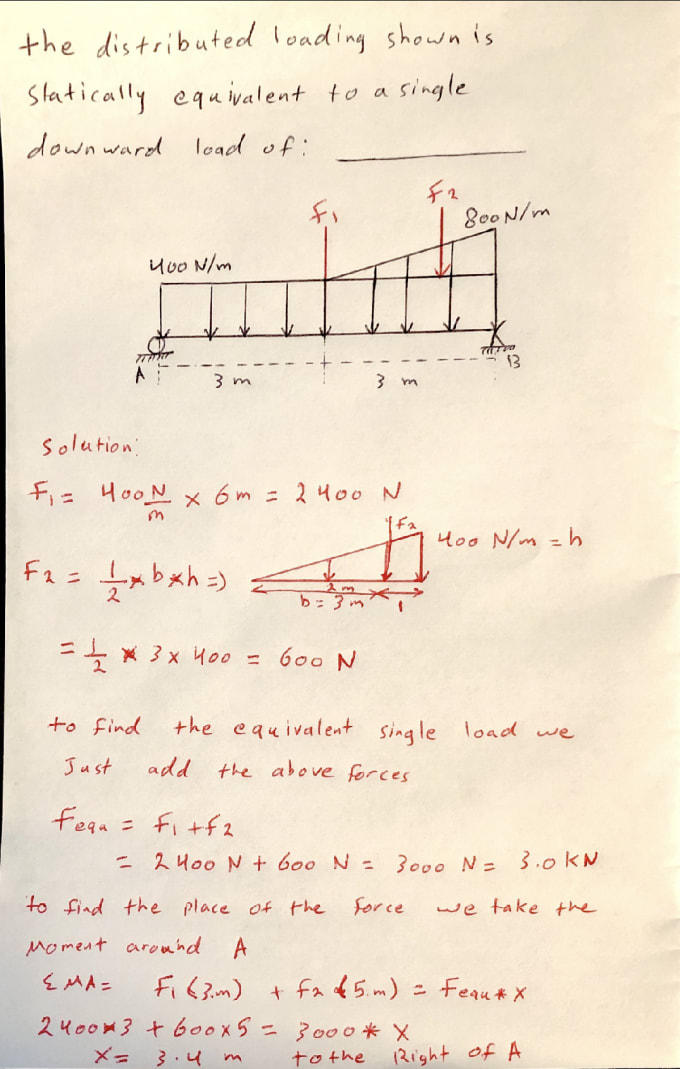 the distributed loading shown is
statically equivalent to a single
downward load of:
F1
F2
800 N/m
400 N/m
A
3 m
3 m
B
Solution:
F1 = 400 N/m × 6m = 2400 N
F2 = 1/2 * b * h =>
F2
400 N/m = h
2m
b = 3m
1
= 1/2 * 3 × 400 = 600 N
to find the equivalent single load we
Just add the above forces
Fequ = F1 + F2
= 2400 N + 600 N = 3000 N = 3.0 KN
to find the place of the force we take the
Moment around A
ΣMA = F1 (3.m) + F2 (5.m) = Fequ * X
2400*3 + 600×5 = 3000 * X
X = 3.4 m to the Right of A